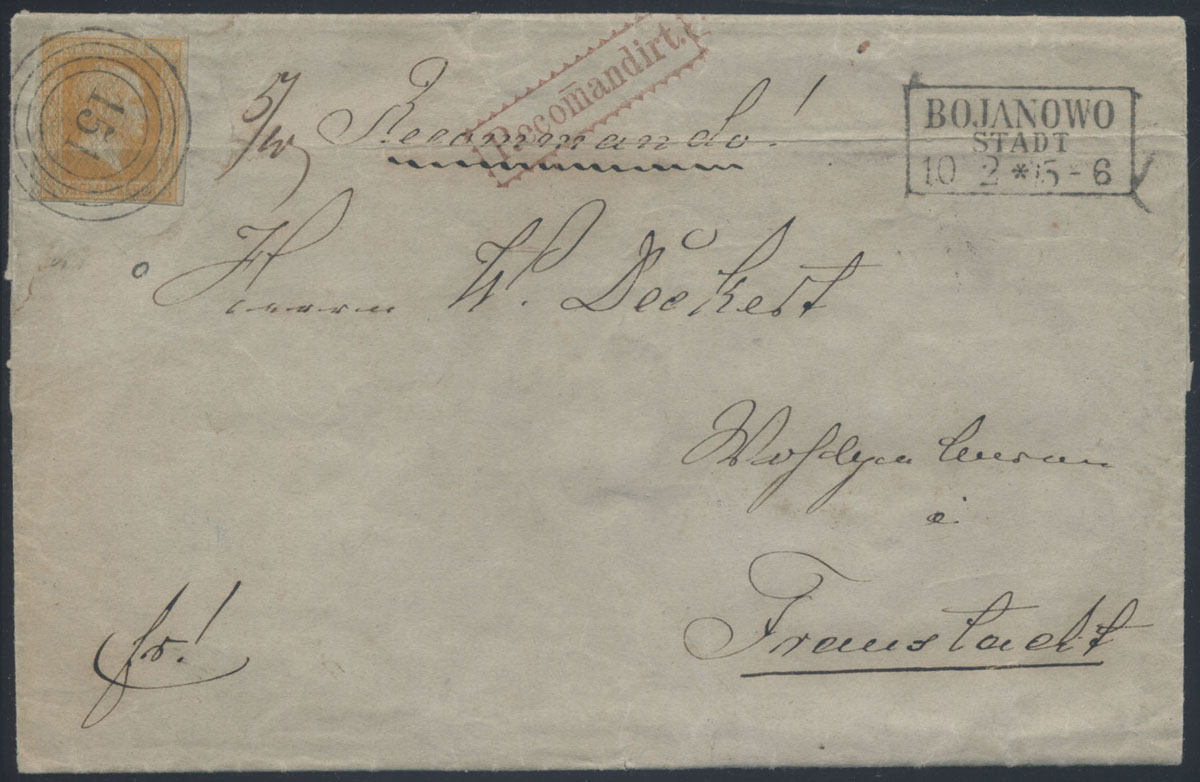 151
Recommando!
Recomandirt.
BOJANOWO
STADT
10 2 * 5-6
Herrn W. Deckert
Wohlgeboren
Fraustadt
fr!